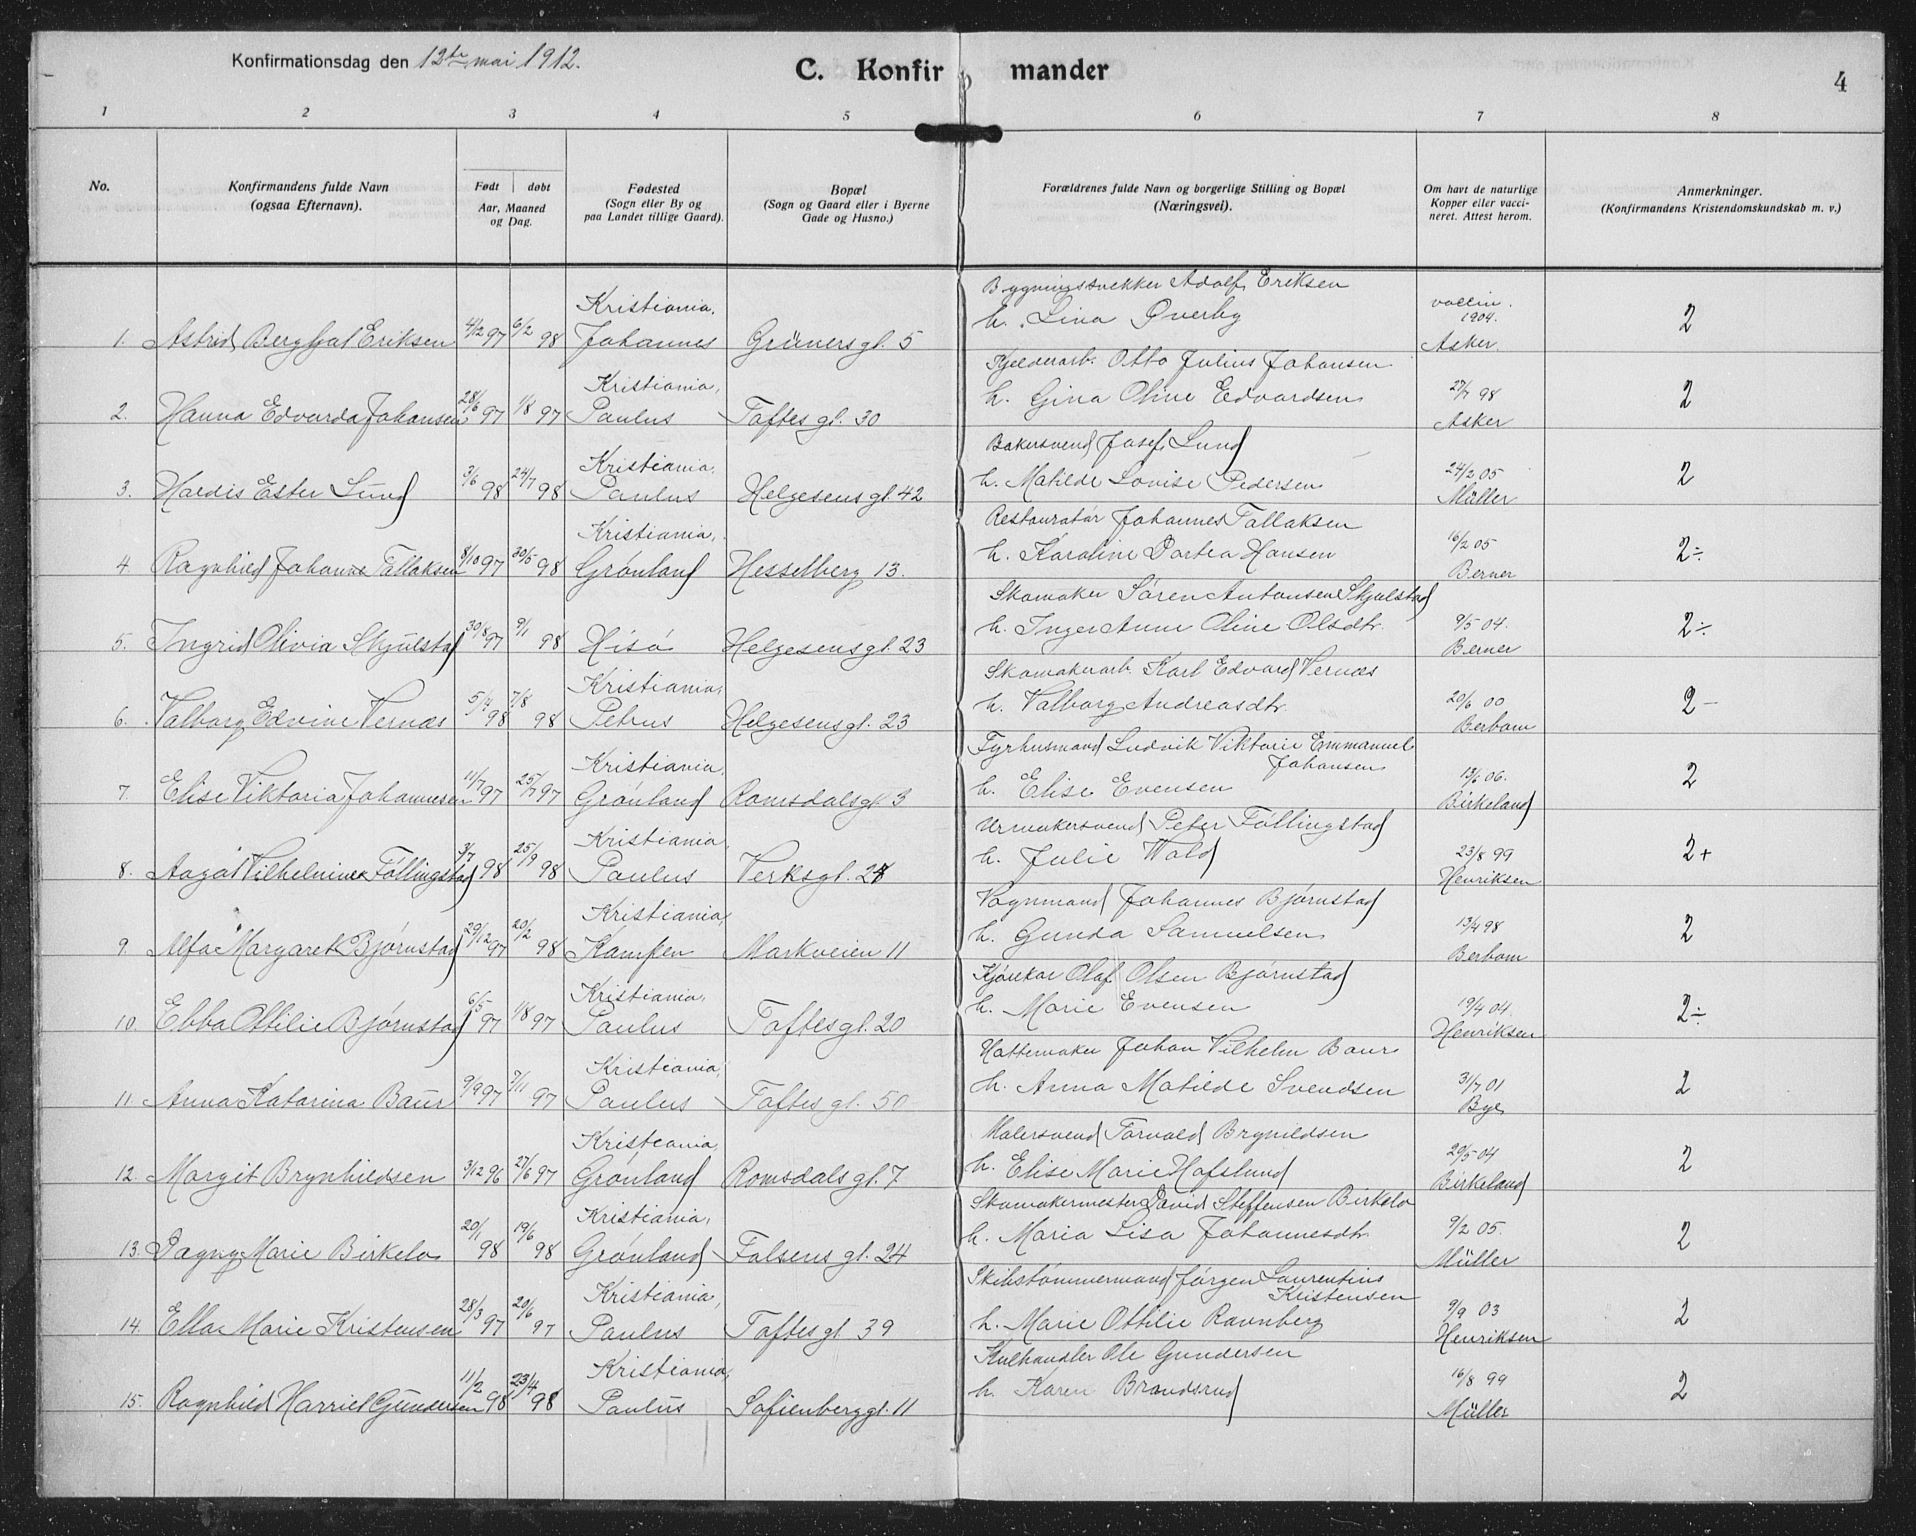 Konfirmationsdag den 12te mai 1912.
C. Konfirmander
4
1 2 3 4 5 6 7 8
No.
Konfirmandens fulde Navn
(ogsaa Efternavn).
Født | døbt
Aar, Maaned
og Dag.
Fødested
(Sogn eller By og
paa Landet tillige Gaard).
Bopæl
(Sogn og Gaard eller i Byerne
Gade og Husno.)
Forældrenes fulde Navn og borgerlige Stilling og Bopæl
(Næringsvei).
Om havt de naturlige
Kopper eller vacci-
neret. Attest herom.
Anmerkninger.
(Konfirmandens Kristendomskundskab m. v.)
Kristiania, Adolf Eriksen vaccin. 1904.
1. Astrid Eriksen 4/12 97 6/2 98 Johannes Grünersgt. 5 h. Lina Øverby Asker 2
Kristiania, Otto Julius Johansen
2. Hanna Edvarda Johansen 28/6 97 1/8 97 Paulus Toftesgt. 30 h. Gina Oline Edvardsen 27/7 98 Asker 2
Kristiania, Bakersvend Josef Lund
3. Haldis Ester Lund 3/6 98 24/7 98 Paulus Helgesensgt. 42 h. Matilde Lovise Pedersen 24/2 05 Müller 2
Kristiania, Restauratør Johannes Tallaksen
4. Ragnhild Johanne Tallaksen 8/10 97 30/5 98 Grønland Hesselberg 13. h. Karoline Dortea Hansen 16/2 05 Berner 2÷
Skomaker Søren Antonsen Skjulstad
5. Ingrid Olivia Skjulstad 30/8 97 9/1 98 Hisø Helgesensgt. 23 h. Inger Anne Oline Olsdtr. 9/5 04. Berner 2÷
Kristiania, Skomakerarb. Karl Edvard Vernæs
6. Valborg Edvine Vernæs 98 7/8 98 Petrus Helgesensgt. 23 h. Valborg Andreasdtr. 20/6 00 Berbom 2-
Kristiania, Fyrhusmand Ludvik Viktorie Emmanuel
Johansen
7. Elise Viktoria Johannesen 11/7 97 25/7 97 Grønland Romsdalsgt. 3 h. Elise Evensen 13/6 06. Birkeland 2
Kristiania, Urmakersvend Peter Føllingstad
8. Aagot Vilhelmine Føllingstad 3/7 98 25/9 98 Paulus Verksgt. h. Julie Wold 23/8 99 Henriksen 2+
Kristiania, Vognmand Johannes Bjørnstad
9. Alfa Margaret Bjørnstad 29/12 97 20/2 98 Kampen Markveien 11 h. Gunda Samuelsen 13/4 98 Berbom 2
Kristiania, Kjørekar Olaf Olsen Bjørnstad
10. Ebba Ottilie Bjørnstad 6/5 97 1/8 97 Paulus Toftesgt. 20 h. Marie Evensen 19/4 04. Henriksen 2÷
Kristiania, Hattemaker Johan Vilhelm Baur
11. Anna Katarina Baur 9/9 97 7/11 97 Paulus Toftesgt. 50 h. Anna Matilde Svendsen 31/7 01 Bye 2
Kristiania, Malersvend Torvald Brynildsen
12. Margit Brynhildsen 3/12 96 27/6 97 Grønland Romsdalsgt. 7 h. Elise Marie Hafslund 29/5 04 Birkeland 2
Kristiania, Skomakermester David Steffensen Birkelo
13. Dagny Marie Birkelo 20/1 98 19/6 98 Grønland Falsensgt. 24 h. Maria Lisa Johannesdtr. 9/2 05. Müller 2
Kristiania, Skibstømmermand Jørgen Laurentius
Kristensen
14. Ella Marie Kristensen 28/3 97 20/6 97 Paulus Toftesgt 39 h. Marie Ottilie Ravnberg 9/9 03 Henriksen 2
Kristiania, Kulhandler Ole Gundersen
15. Ragnhild Harriet Gundersen 11/2 98 23/4 98 Paulus Sofienberggt. 11 h. Karen Brandsrud 16/8 99 Müller 2